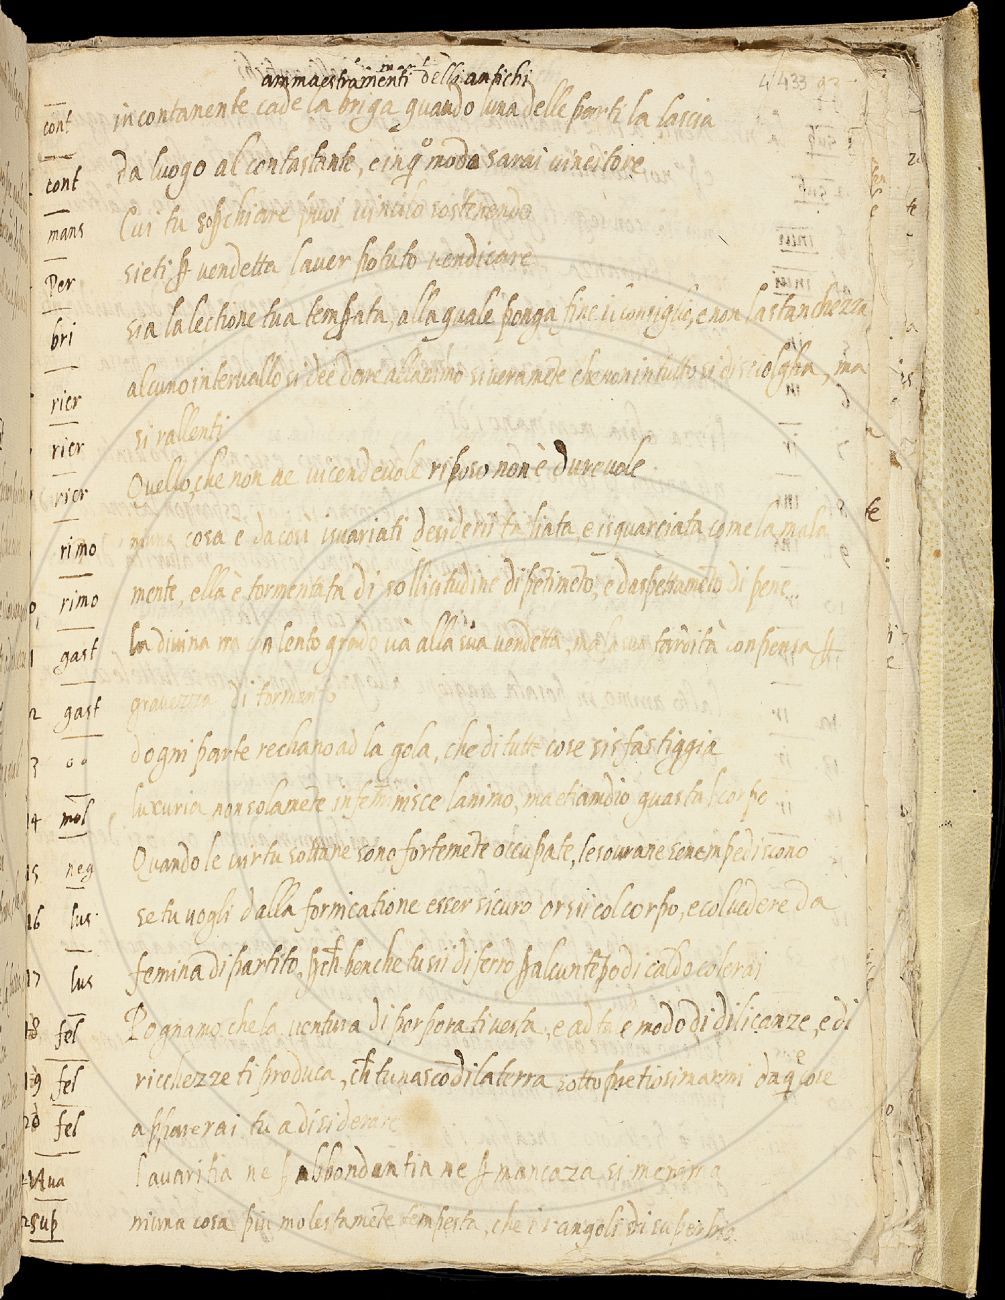 ammaestramenti delli antichi
4 433 92
cont incontanente cade la briga quando luna delle parti la lascia
cont da luogo al contastante, e in qo modo sarai vincitore
mans Cui tu soschiare puoi vincilo sostenendo
Per sieti p vendetta laver potuto vendicare
bri sia la lectione tua temperata, alla quale ponga fine il consiglio, e non la stanchezza
rier alcuno intervallo si dee dare all animo si veramēte che non in tutto si discolgha, ma
rier si rallenti
rier Quello, che non ae vicendevole riposo non è durevole
rimo niuna cosa e da cosi isvariati desiderii tagliata, e isquarciata come la mala
rimo mente, ella è tormentata di sollicitudine di petimēto, e daspettamēto di pene
gast la divina ma con lento grado va alla sua vendetta, ma la sua tardità conpensa p
gast gravezza di tormento
dogni parte rechano ad la gola, che di tutte cose si fastiggia
14 mol luxuria non solamēte infemmisce lanimo, ma etiamdio guasta l corpo
15 neg Quando le virtu sottane sono fortemēte occupate, le sovrane senempediscono
16 lus se tu vogli dalla fornicatione esser sicuro or sii col corpo, e col vedere da
17 lus femina di partito, pch benche tu sii di ferro p alcun tēpo di caldo colerai
18 fel Pognamo, che la ventura di porpora ti vesta, e ad te e modo di dilicanze, e di
19 fel ricchezze ti produca, ch tu nascōdi la terra sotto pretiosi marmi da qe cose
20 fel apparerai tu a disiderare
21 Ava lavaritia ne p abbondantia ne p mancāza si menima
22 sup niuna cosa piu molestamēte tempesta, che i rangoli di superbia